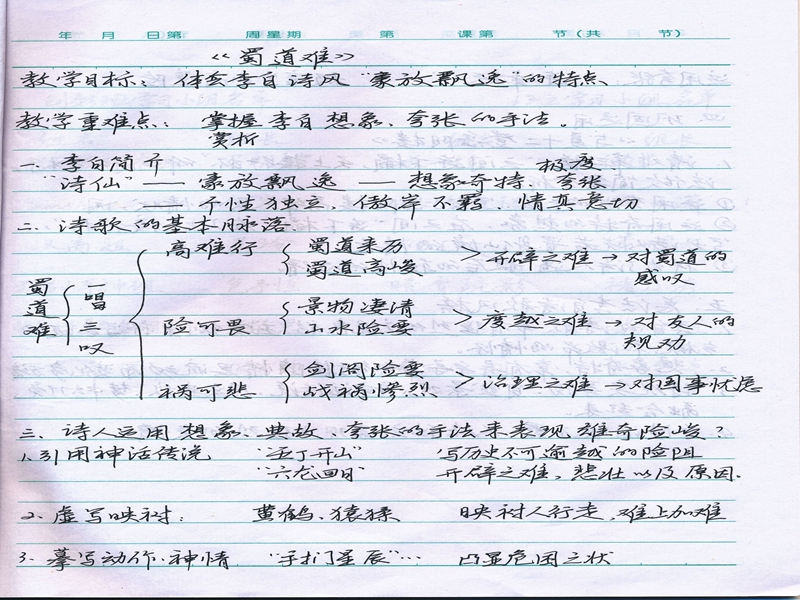 年 月 日第 周星期 第 课第 节(共 节)
《蜀道难》
教学目标：体会李白诗风"豪放飘逸"的特点
教学重难点：掌握李白想象、夸张的手法。
赏析
一、李白简介
"诗仙"—— 豪放飘逸 — 想象奇特、极度夸张
—— 个性独立，傲岸不羁，情真意切
二、诗歌的基本脉落
蜀道难 一唱三叹
高难行 蜀道来历 蜀道高峻 > 开辟之难 → 对蜀道的感叹
险可畏 景物凄清 山水险要 > 度越之难 → 对友人的规劝
祸可悲 剑阁险要 战祸惨烈 > 治理之难 → 对国事忧虑
三、诗人运用想象、典故、夸张的手法来表现雄奇险峻？
1、引用神话传说 "五丁开山" 写历史不可逾越的险阻
"六龙回日" 开辟之难，悲壮以及原因.
2、虚写映衬： 黄鹤、猿猱 映衬人行走，难上加难
3、摹写动作、神情 "手扪星辰"… 凸显危困之状